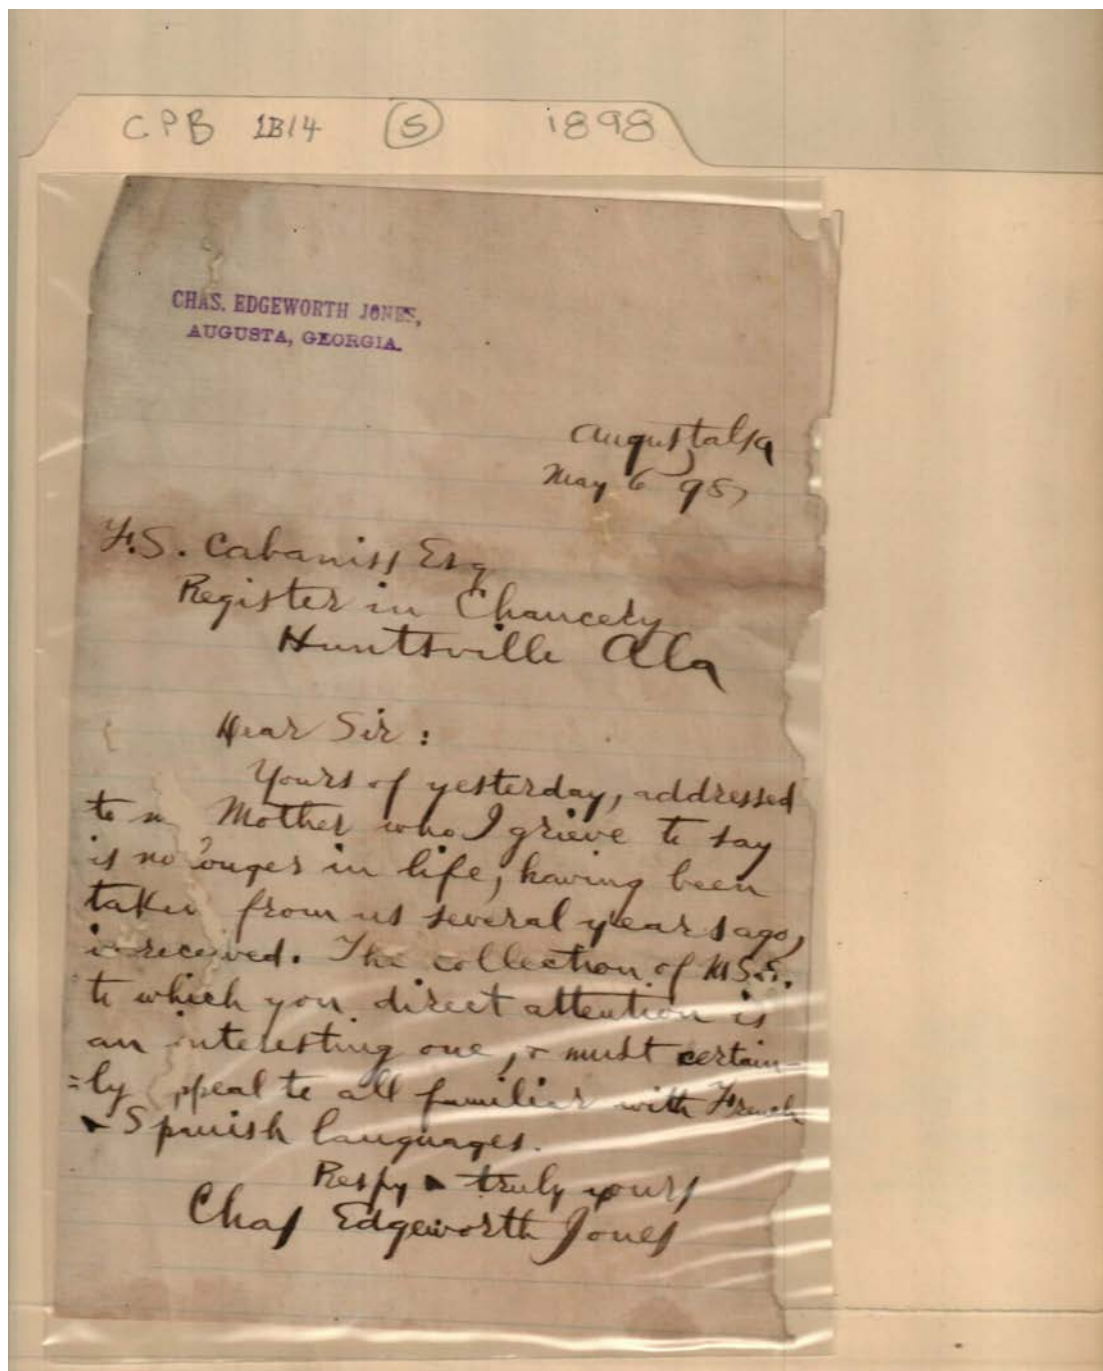 CPB 1B14 (5) 1898
CHAS. EDGEWORTH JONES,
AUGUSTA, GEORGIA.
Augusta Ga
May 6 98,
F.S. Cabaniss Esq
Register in Chancery
Huntsville Ala
Dear Sir:
Yours of yesterday, addressed
to m Mother who I grieve to say
is no longer in life, having been
taken from us several years ago,
is received. The collection of M.S.S.
to which you direct attention is
an interesting one, & must certain-
=ly ppeal to all familiar with French
& Spanish languages.
Respy & truly yours
Chas Edgeworth Jones